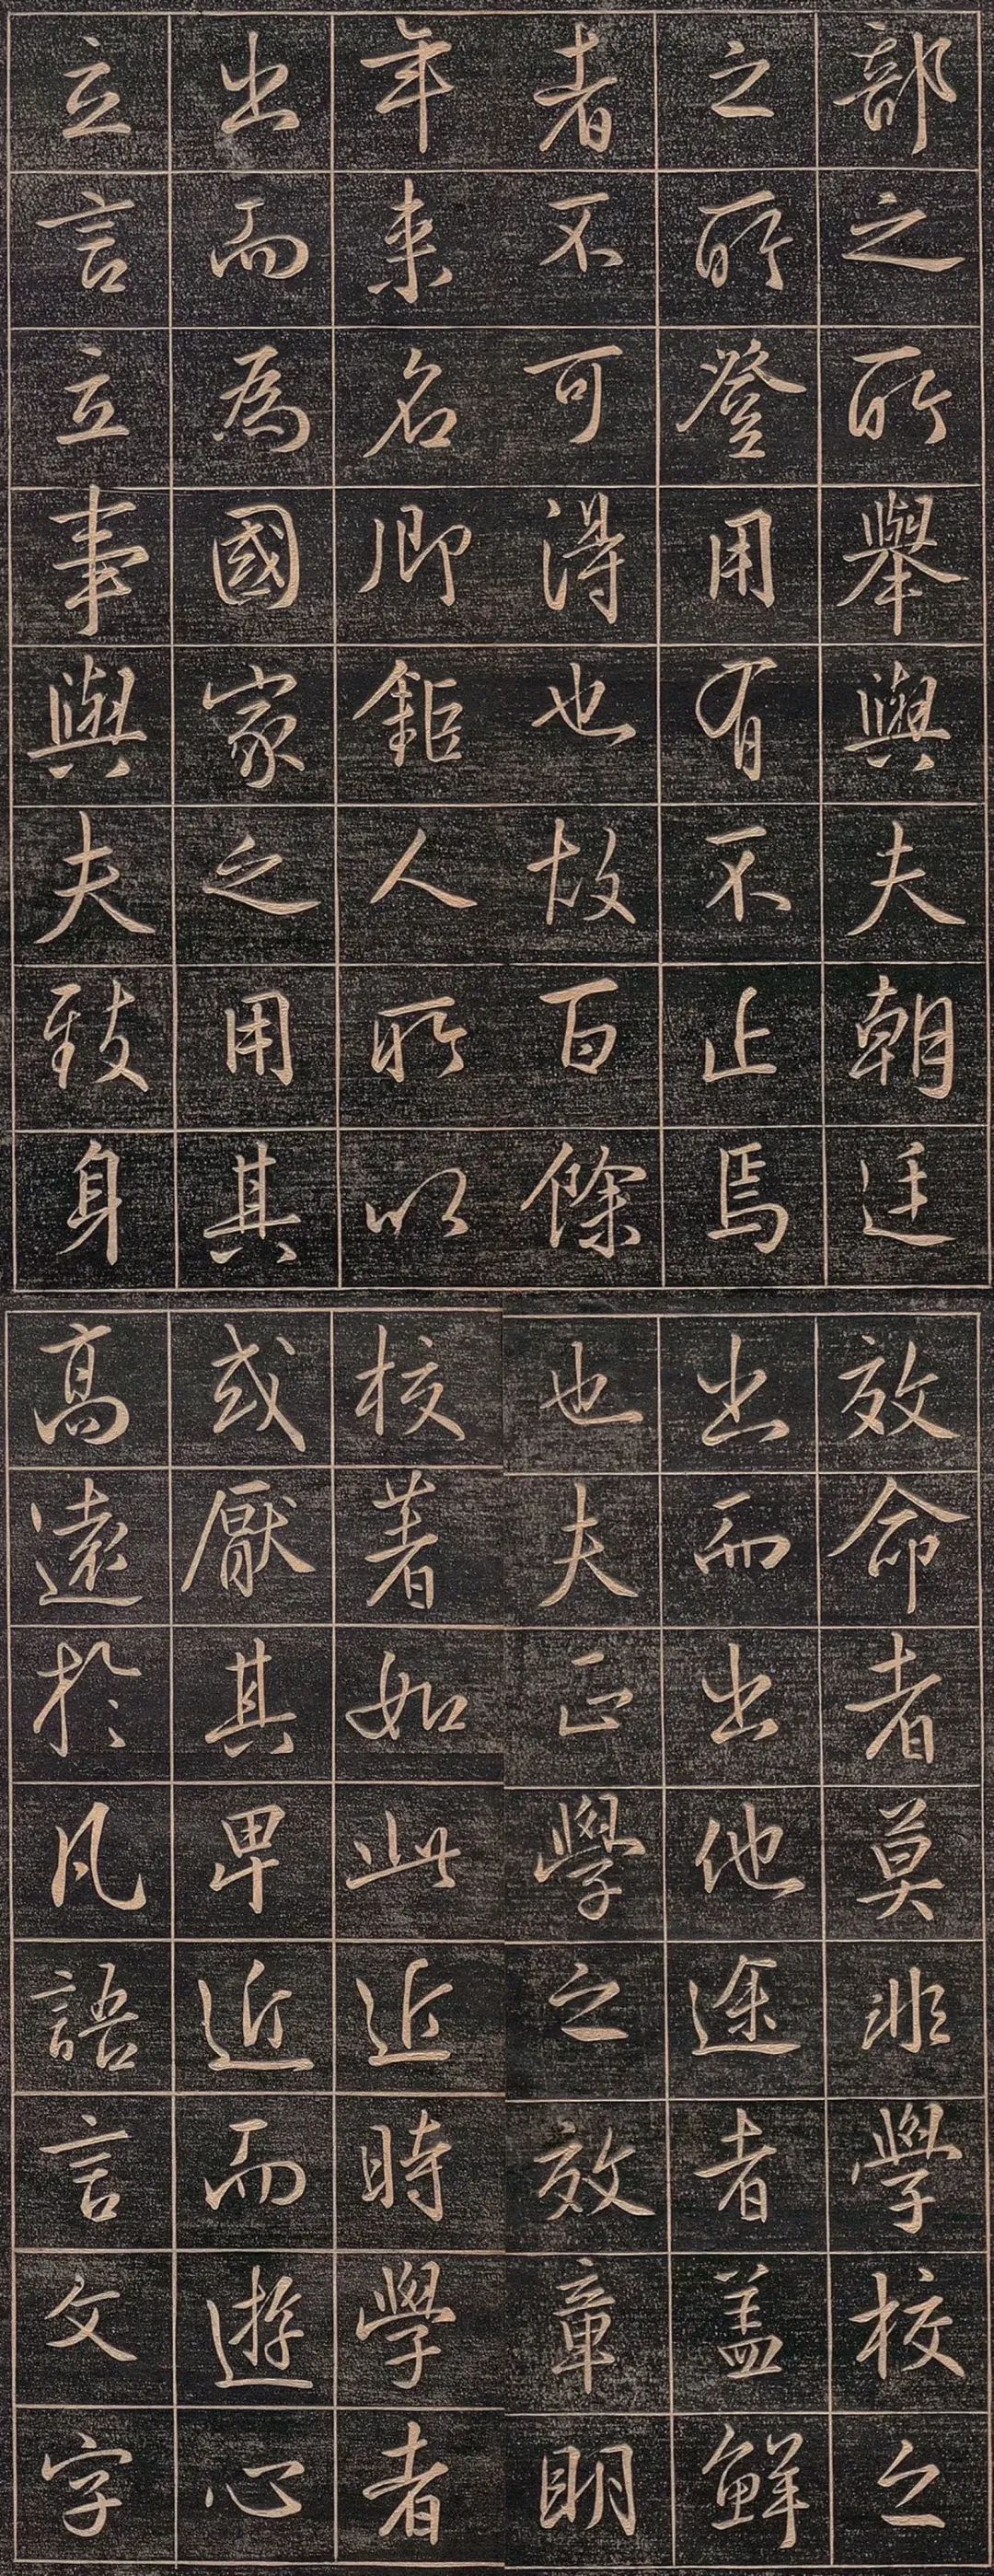 部之所舉與夫朝廷
之所登用有不止焉
者不可得也故百餘
年来名卿鉅人所以
出而為國家之用其
立言立事與夫致身
效命者莫非學校之
出而出他途者盖鮮
也夫正學之效章明
校著如此近時學者
或厭其卑近而遊心
高遠於凡語言文字